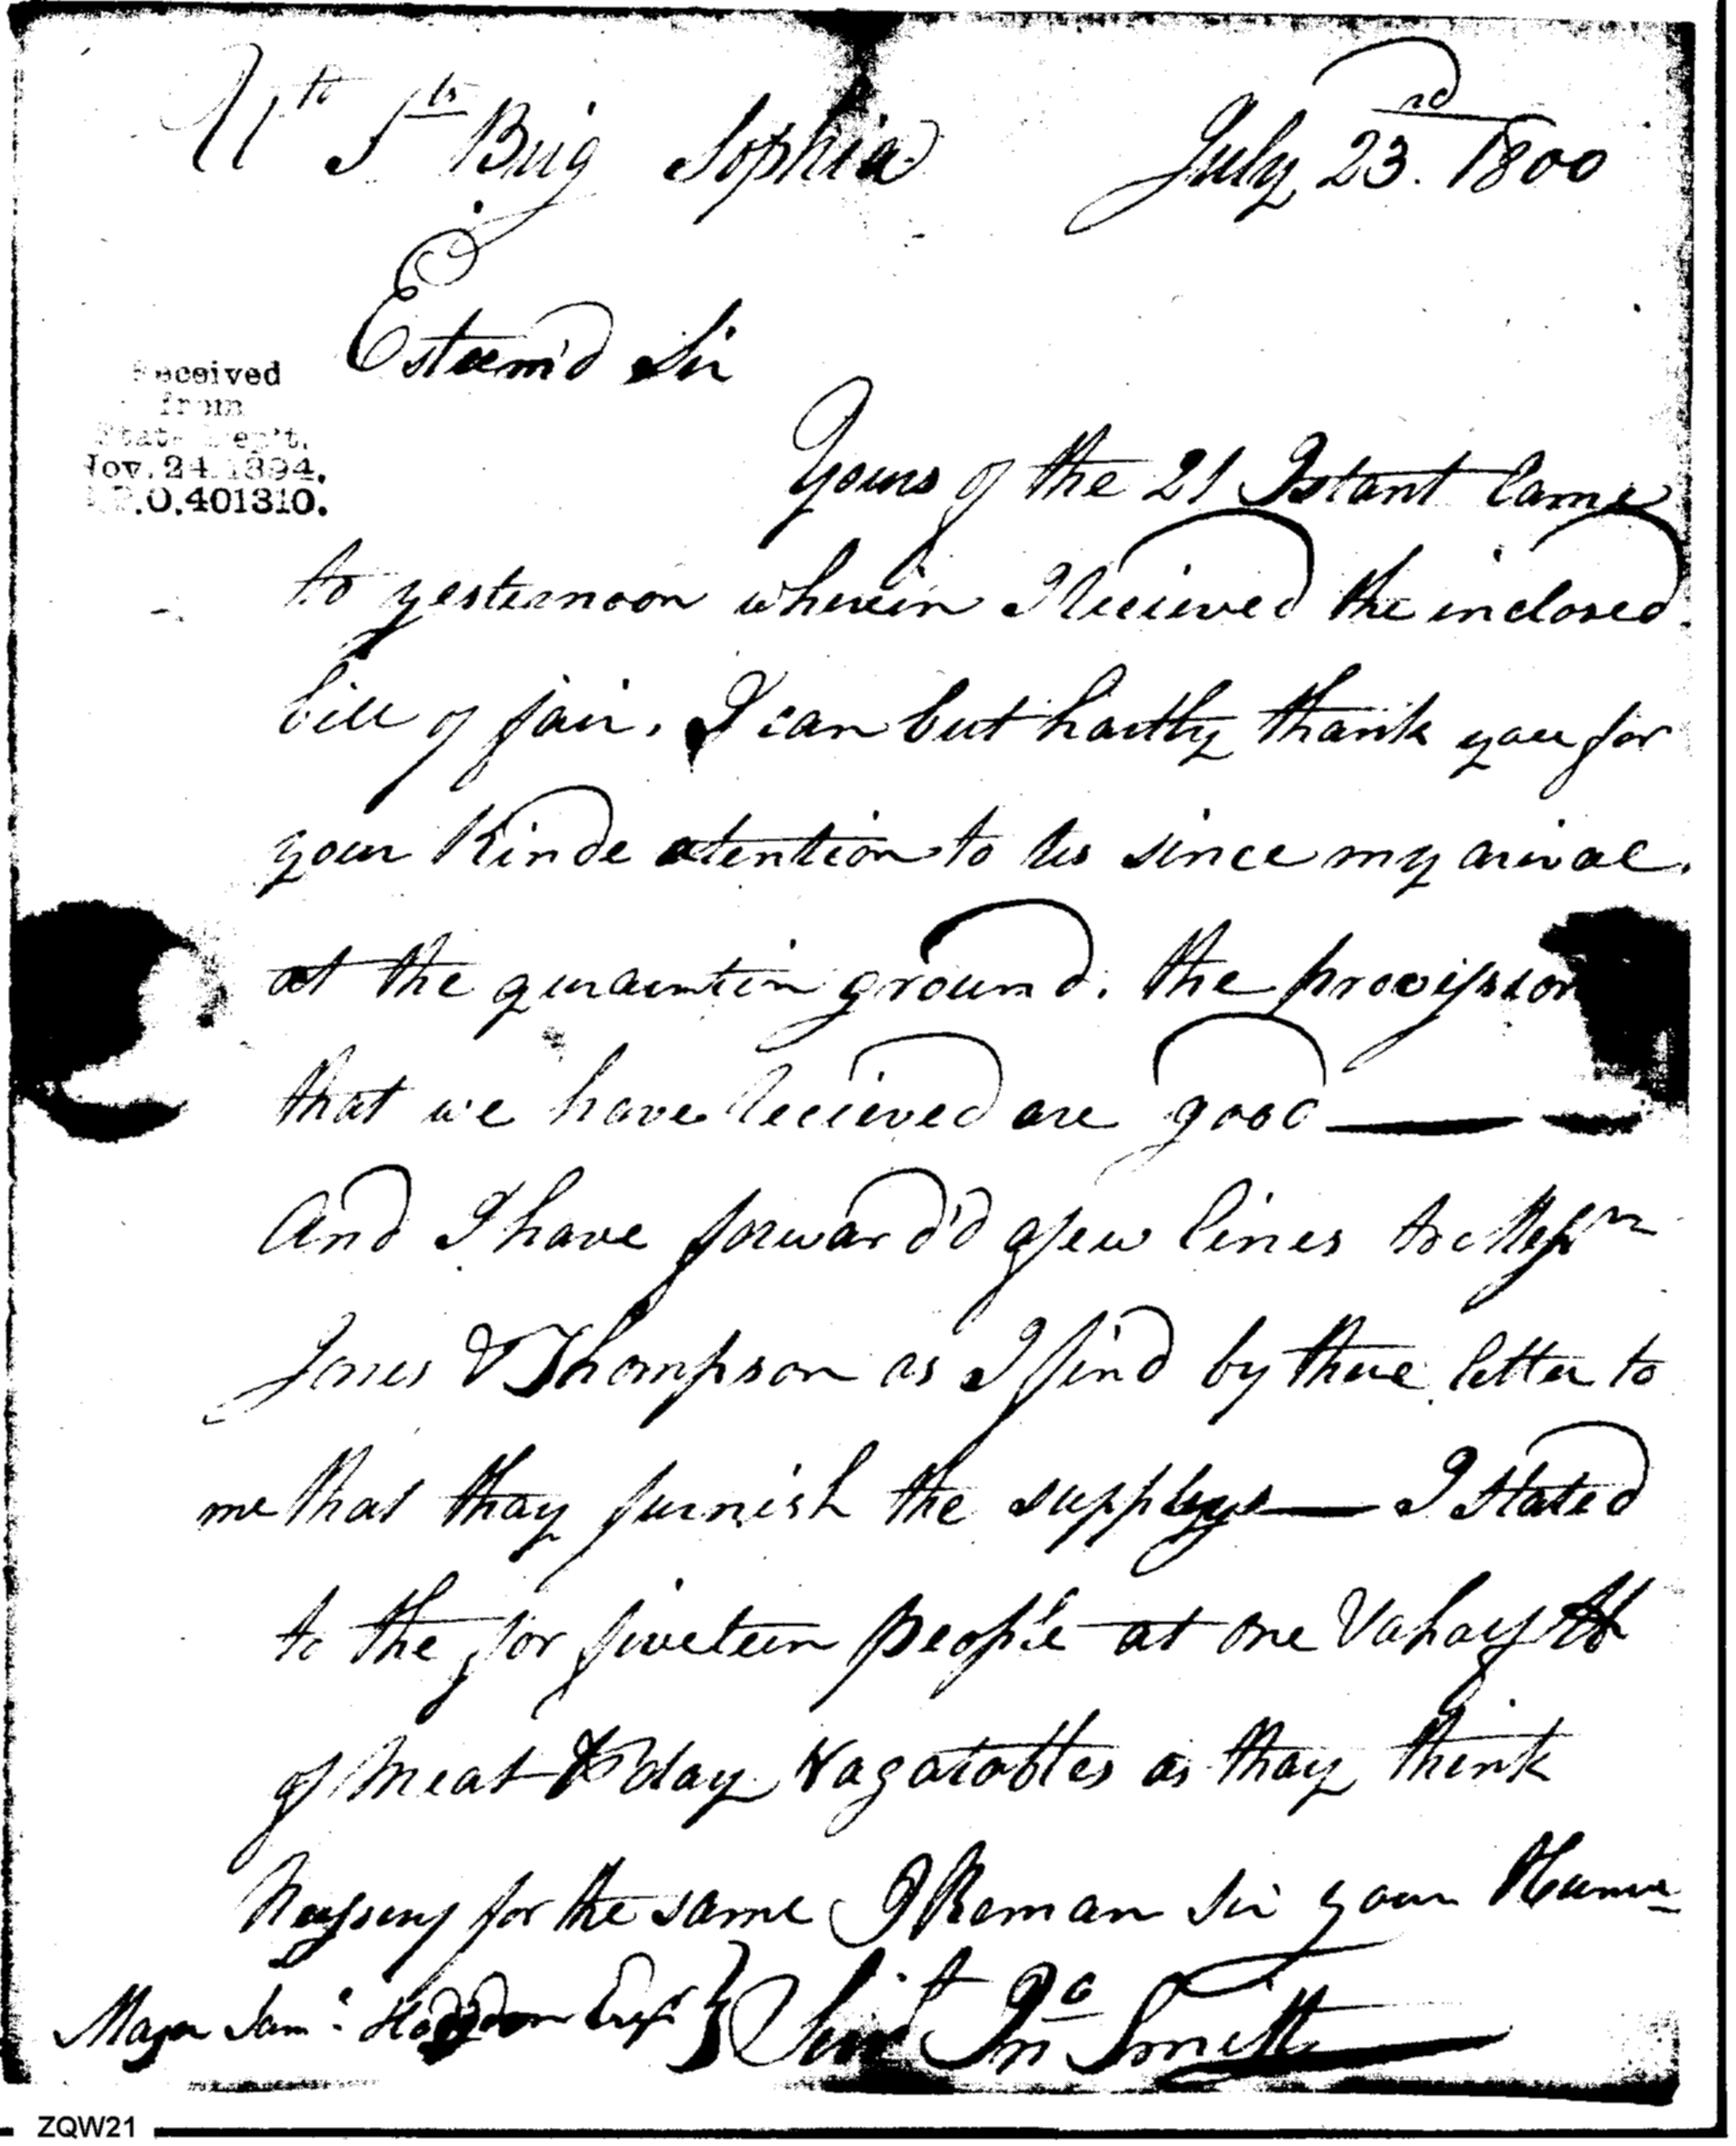 Utd Sts Brig Sophia July 23rd. 1800
Esteem'd Sir
Received
from
State Dep't.
Nov. 24 1894.
R.P.O. 401310.
Yours of the 21 Istant Came
to yesternoon wherein I Recieved the inclosed
bill of fair. I can but hartly thank you for
your Kinde atention to us since my arival.
at the qurauntin ground. the provission
that we have Recieved are good —
And I have forward'd a few lines to Messrs
Jones & Thompson as I find by there letter to
me that thay furnish the supplys — I stated
to the for fiveteen people at one & a half lb
of Meat ⅌ day. Vagatables as thay think
for the same I Reman Sir your Hum
Major Jams. Esqr } Servt Jno Smith
ZQW21